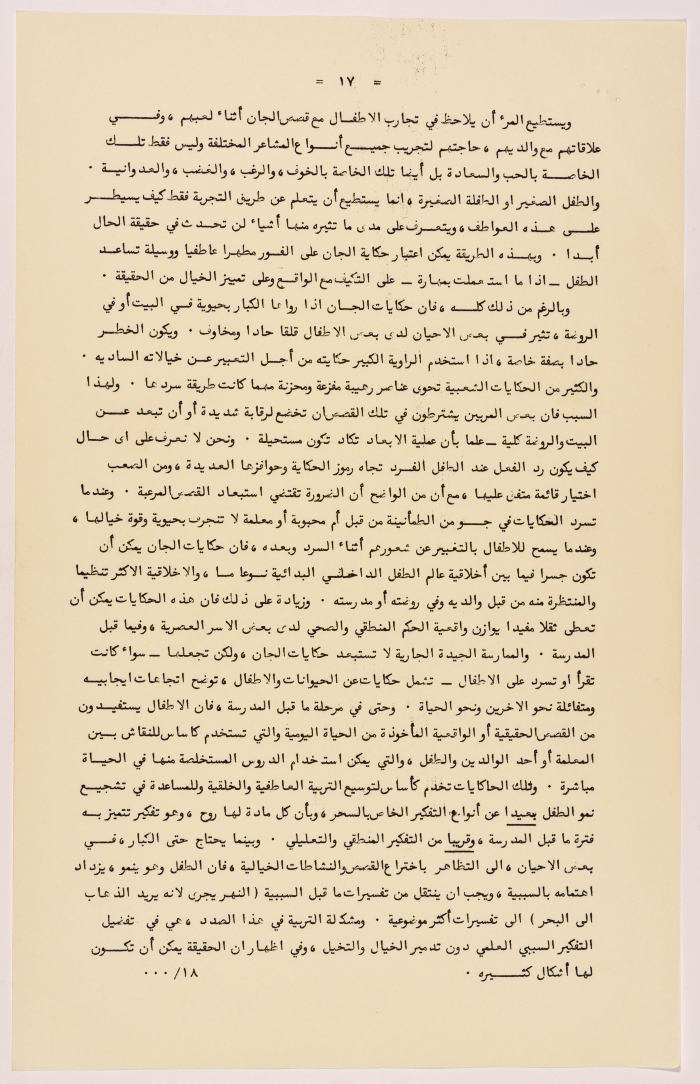 = ١٧ =
ويستطيع المرء أن يلاحظ في تجارب الاطفال مع قصص الجان أثناء لعبهم ، وفي
علاقاتهم مع والديهم ، حاجتهم لتجريب جميع أنواع المشاعر المختلفة وليس فقط تلك
الخاصة بالحب والسعادة بل أيضا تلك الخاصة بالخوف ، والرغب ، والغضب ، والعدوانية .
والطفل الصغير او الطفلة الصغيرة ، انما يستطيع أن يتعلم عن طريق التجربة فقط كيف يسيطر
على هذه العواطف ، ويتعرف على مدى ما تثيره منها أشياء لن تحدث في حقيقة الحال
أبدا . وبهذه الطريقة يمكن اعتبار حكاية الجان على الفور مطهرا عاطفيا ووسيلة تساعد
الطفل ـ اذا ما استعملت بمهارة ـ على التكيف مع الواقع وعلى تمييز الخيال من الحقيقة .
وبالرغم من ذلك كله ، فان حكايات الجان اذا رواها الكبار بحيوية في البيت أو في
الروضة ، تثير في بعض الاحيان لدى بعض الاطفال قلقا حادا ومخاوف . ويكون الخطر
حادا بصفة خاصة ، اذا استخدم الراوية الكبير حكايته من أجل التعبير عن خيالاته الساديه .
والكثير من الحكايات الشعبية تحوى عناصر رهيبة مفزعة ومحزنة مهما كانت طريقة سردها . ولهذا
السبب فان بعض المربين يشترطون في تلك القصص ان تخضع لرقابة شديدة أو أن تبعد عن
البيت والروضة كلية ـ علما بأن عملية الابعاد تكاد تكون مستحيلة . ونحن لا نعرف على اى حال
كيف يكون رد الفعل عند الطفل الفرد تجاه رموز الحكاية وحوافزها العديدة ، ومن الصعب
اختيار قائمة متفق عليها ، مع أن من الواضح أن الضرورة تقتضي استبعاد القصص المرعبة . وعندما
تسرد الحكايات في جو من الطمأنينة من قبل أم محبوبة أو معلمة لا تنجرف بحيوية وقوة خيالها ،
وعندما يسمح للاطفال بالتغبير عن شعورهم أثناء السرد وبعده ، فان حكايات الجان يمكن أن
تكون جسرا فيما بين أخلاقية عالم الطفل الداخلي البدائية نوعا ما ، والاخلاقية الاكثر تنظيما
والمنتظرة منه من قبل والديه وفي روضته أو مدرسته . وزيادة على ذلك فان هذه الحكايات يمكن أن
تعطى ثقلا مفيدا يوازن واقعية الحكم المنطقي والصحي لدى بعض الاسر العصرية ، وفيما قبل
المدرسة . والممارسة الجيدة الجارية لا تستبعد حكايات الجان ، ولكن تجعلها ـ سواء كانت
تقرأ او تسرد على الاطفال ـ تشمل حكايات عن الحيوانات والاطفال ، توضح اتجاهات ايجابيه
ومتفائلة نحو الاخرين ونحو الحياة . وحتى في مرحلة ما قبل المدرسة ، فان الاطفال يستفيدون
من القصص الحقيقية أو الواقعية المأخوذة من الحياة اليومية والتي تستخدم كاساس للنقاش بين
المعلمة أو أحد الوالدين والطفل ، والتي يمكن استخدام الدروس المستخلصة منها في الحياة
مباشرة . وتلك الحاكايات تخدم كأساس لتوسيع التربية العاطفية والخلقية وللمساعدة في تشجيع
نمو الطفل بعيدا عن أنواع التفكير الخاص بالسحر ، وبأن كل مادة لها روح ، وهو تفكير تتميز به
فترة ما قبل المدرسة ، وقريبا من التفكير المنطقي والتعليلي . وبينما يحتاج حتى الكبار ، في
بعض الاحيان ، الى التظاهر باختراع القصص والنشاطات الخيالية ، فان الطفل وهو ينمو ، يزداد
اهتمامه بالسببية ، ويجب ان ينتقل من تفسيرات ما قبل السببية ( النهر يجرى لانه يريد الذهاب
الى البحر ) الى تفسيرات أكثر موضوعية . ومشكلة التربية في هذا الصدد ، هي في تفضيل
التفكير السببي العلمي دون تدمير الخيال والتخيل ، وفي اظهار ان الحقيقة يمكن أن تكون
لها أشكال كثيره .
١٨/ ...